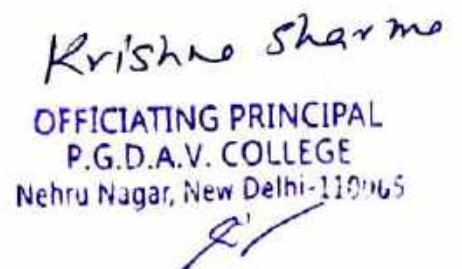 Krishna Sharma
OFFICIATING PRINCIPAL
P.G.D.A.V. COLLEGE
Nehru Nagar, New Delhi-110065